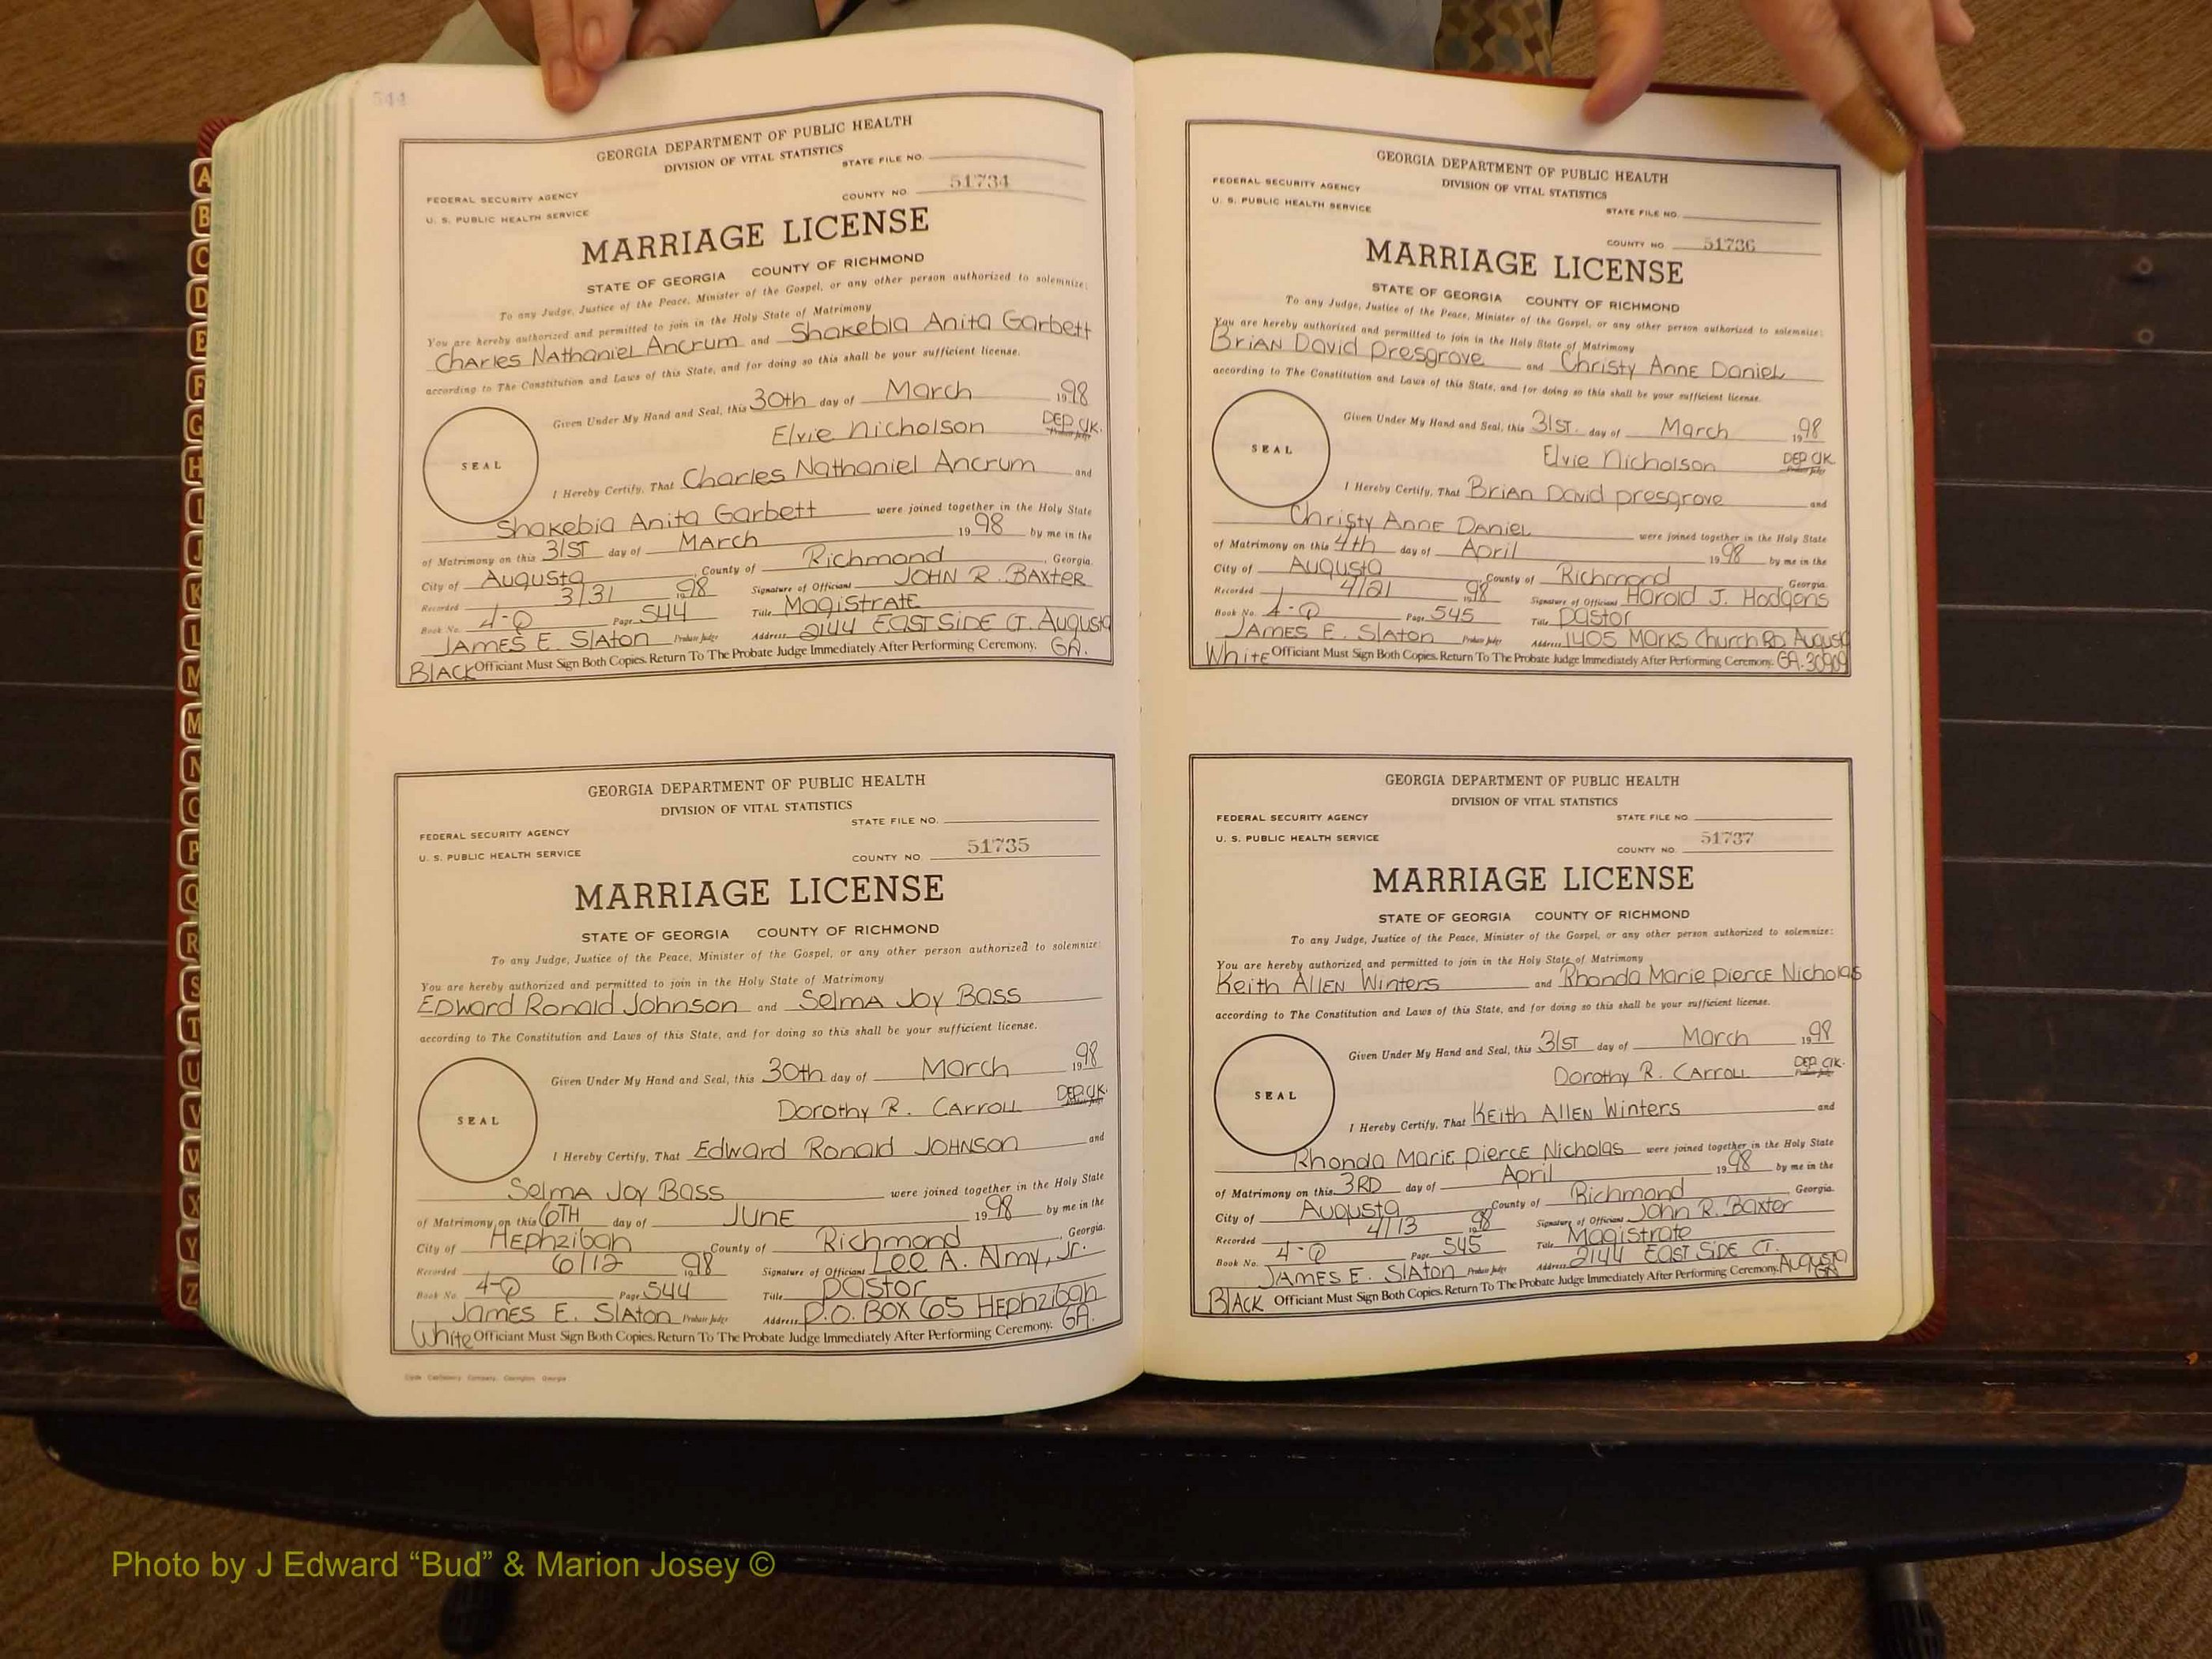 544
GEORGIA DEPARTMENT OF PUBLIC HEALTH
DIVISION OF VITAL STATISTICS
STATE FILE NO.
FEDERAL SECURITY AGENCY
COUNTY NO. 51734
U. S. PUBLIC HEALTH SERVICE
MARRIAGE LICENSE
STATE OF GEORGIA COUNTY OF RICHMOND
To any Judge, Justice of the Peace, Minister of the Gospel, or any other person authorized to solemnize:
You are hereby authorized and permitted to join in the Holy State of Matrimony
Charles Nathaniel Ancrum and Shakebia Anita Garbett
according to The Constitution and Laws of this State, and for doing so this shall be your sufficient license.
Given Under My Hand and Seal, this 30th day of March 1998
Elvie Nicholson DEP. Clk. Probate Judge
SEAL
I Hereby Certify, That Charles Nathaniel Ancrum and
Shakebia Anita Garbett were joined together in the Holy State
of Matrimony on this 31ST day of March 1998 by me in the
City of Augusta County of Richmond, Georgia.
Recorded 3/31 1998 Signature of Officiant JOHN R. BAXTER
Book No. 4-Q Page 544 Title Magistrate
JAMES E. SLATON Probate Judge Address 2144 EAST SIDE CT. Augusta
BLACK Officiant Must Sign Both Copies. Return To The Probate Judge Immediately After Performing Ceremony. GA.
GEORGIA DEPARTMENT OF PUBLIC HEALTH
DIVISION OF VITAL STATISTICS
STATE FILE NO.
FEDERAL SECURITY AGENCY
U. S. PUBLIC HEALTH SERVICE
COUNTY NO. 51735
MARRIAGE LICENSE
STATE OF GEORGIA COUNTY OF RICHMOND
To any Judge, Justice of the Peace, Minister of the Gospel, or any other person authorized to solemnize:
You are hereby authorized and permitted to join in the Holy State of Matrimony
Edward Ronald Johnson and Selma Joy Bass
according to The Constitution and Laws of this State, and for doing so this shall be your sufficient license.
Given Under My Hand and Seal, this 30th day of March 1998
Dorothy R. Carroll DEP. Clk. Probate Judge
SEAL
I Hereby Certify, That Edward Ronald JOHNSON and
Selma Joy Bass were joined together in the Holy State
of Matrimony on this 6TH day of JUNE 1998 by me in the
City of Hephzibah County of Richmond, Georgia.
Recorded 6/12 1998 Signature of Officiant Lee A. Almy, Jr.
Book No. 4-Q Page 544 Title Pastor
James E. Slaton Probate Judge Address P.O. BOX 65 Hephzibah
White Officiant Must Sign Both Copies. Return To The Probate Judge Immediately After Performing Ceremony. GA.
GEORGIA DEPARTMENT OF PUBLIC HEALTH
DIVISION OF VITAL STATISTICS
FEDERAL SECURITY AGENCY
U. S. PUBLIC HEALTH SERVICE
STATE FILE NO.
COUNTY NO. 51736
MARRIAGE LICENSE
STATE OF GEORGIA COUNTY OF RICHMOND
To any Judge, Justice of the Peace, Minister of the Gospel, or any other person authorized to solemnize:
You are hereby authorized and permitted to join in the Holy State of Matrimony
Brian David Presgrove and Christy Anne Daniel
according to The Constitution and Laws of this State, and for doing so this shall be your sufficient license.
Given Under My Hand and Seal, this 31ST. day of March 1998
Elvie Nicholson DEP Clk. Probate Judge
SEAL
I Hereby Certify, That Brian David Presgrove and
Christy Anne Daniel were joined together in the Holy State
of Matrimony on this 4th day of April 1998 by me in the
City of Augusta County of Richmond Georgia.
Recorded 4/21 1998 Signature of Officiant Harold J. Hodgens
Book No. 4-Q Page 545 Title Pastor
JAMES E. SLATON Probate Judge Address 1405 Marks Church RD. Augusta
White Officiant Must Sign Both Copies. Return To The Probate Judge Immediately After Performing Ceremony. GA. 30909
GEORGIA DEPARTMENT OF PUBLIC HEALTH
DIVISION OF VITAL STATISTICS
FEDERAL SECURITY AGENCY
STATE FILE NO.
U. S. PUBLIC HEALTH SERVICE
COUNTY NO. 51737
MARRIAGE LICENSE
STATE OF GEORGIA COUNTY OF RICHMOND
To any Judge, Justice of the Peace, Minister of the Gospel, or any other person authorized to solemnize:
You are hereby authorized and permitted to join in the Holy State of Matrimony
Keith Allen Winters and Rhonda Marie Pierce Nicholas
according to The Constitution and Laws of this State, and for doing so this shall be your sufficient license.
Given Under My Hand and Seal, this 31ST day of March 1998
Dorothy R. Carroll DEP. Clk. Probate Judge
SEAL
I Hereby Certify, That Keith Allen Winters and
Rhonda Marie Pierce Nicholas were joined together in the Holy State
of Matrimony on this 3RD day of April 1998 by me in the
City of Augusta County of Richmond Georgia.
Recorded 4/13 1998 Signature of Officiant John R. Baxter
Book No. 4-Q Page 545 Title Magistrate
JAMES E. SLATON Probate Judge Address 2144 EAST SIDE CT.
BLACK Officiant Must Sign Both Copies. Return To The Probate Judge Immediately After Performing Ceremony. Augusta GA
A
B
C
D
E
F
G
H
I
J
K
L
M
M
N
O
P
Q
R
S
T
U
V
W
X
Y
Z
Photo by J Edward “Bud” & Marion Josey ©